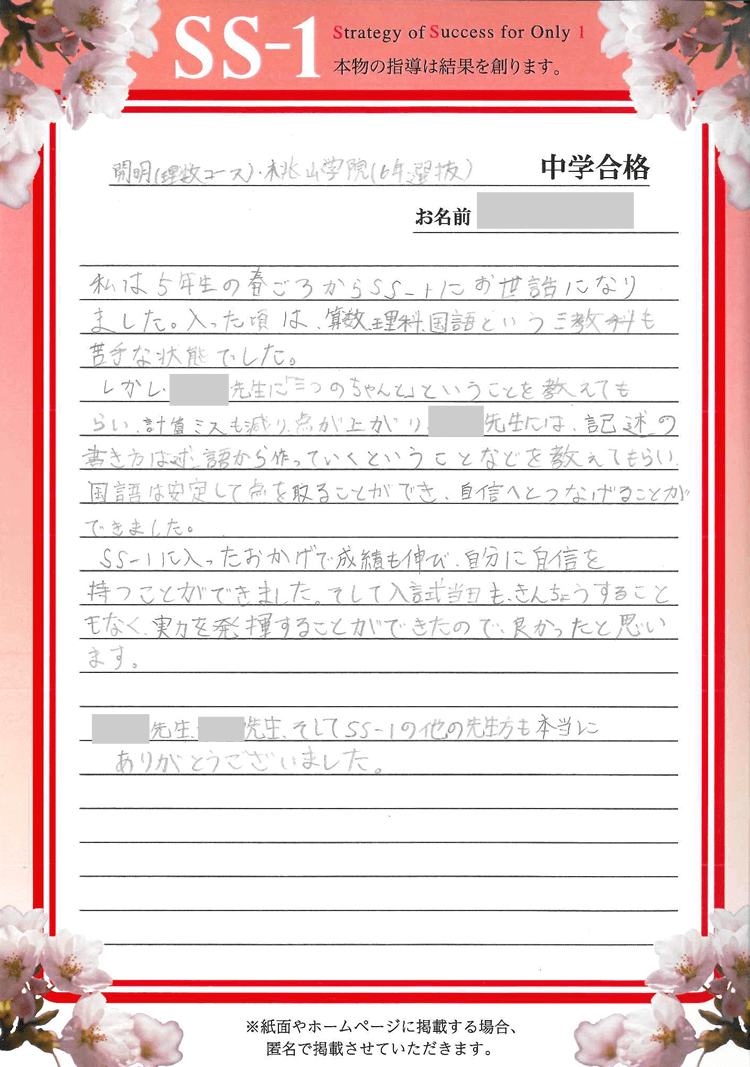 SS-1
Strategy of Success for Only 1
本物の指導は結果を創ります。
開明(理数コース)・桃山学院(6年選抜)
中学合格
お名前
私は5年生の春ごろからSS-1にお世話になり
ました。入った頃は、算数、理科、国語という三教科も
苦手な状態でした。
しかし、先生に「三つのちゃんと」ということを教えても
らい、計算ミスも減り、点が上がり、先生には、記述の
書き方は述語から作っていくということなどを教えてもらい、
国語は安定して点を取ることができ、自信へとつなげることが
できました。
SS-1に入ったおかげで成績も伸び、自分に自信を
持つことができました。そして入試当日も、きんちょうすること
もなく、実力を発揮することができたので、良かったと思い
ます。
先生、先生、そしてSS-1の他の先生方も本当に
ありがとうございました。
※紙面やホームページに掲載する場合、
匿名で掲載させていただきます。